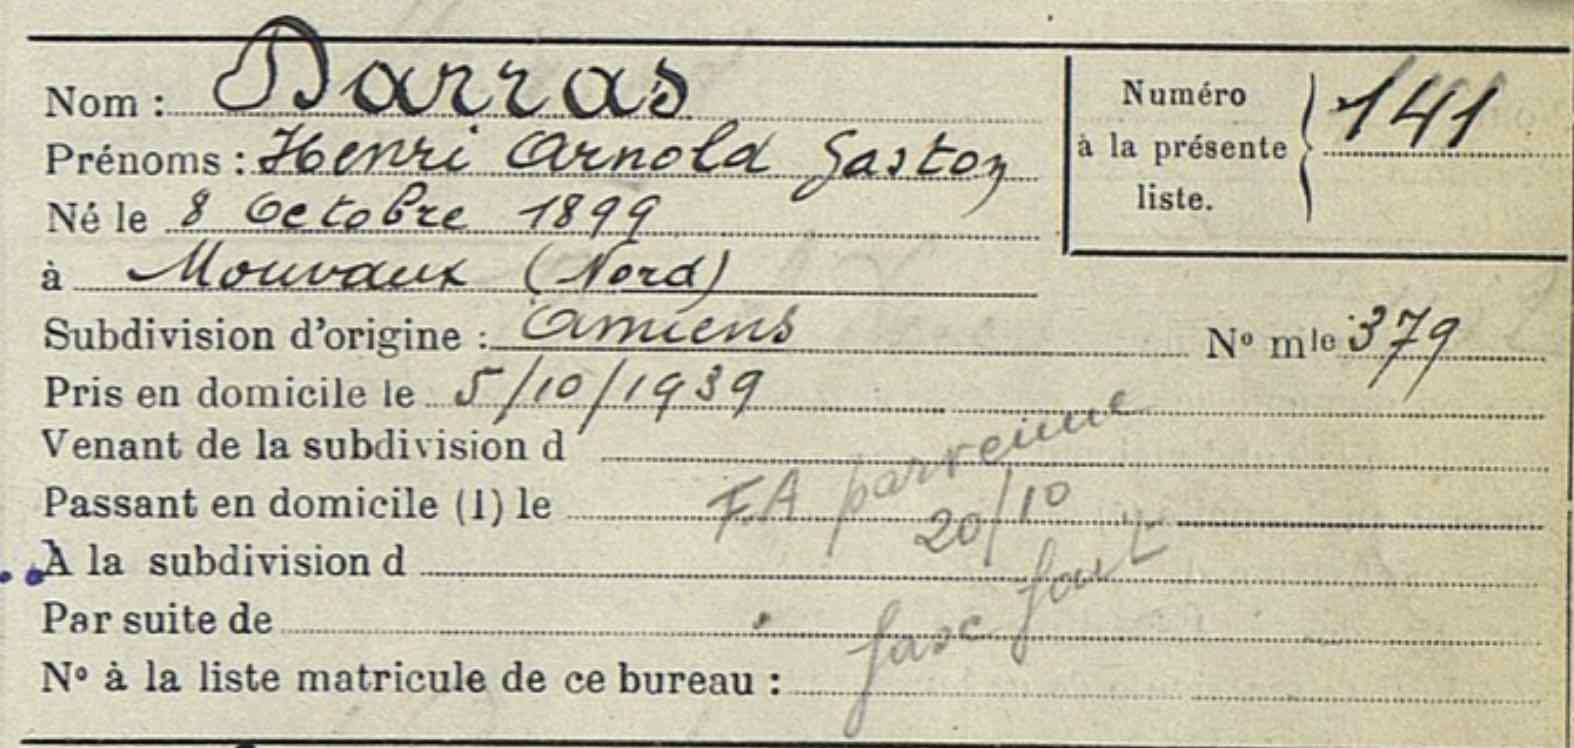 Nom : Darras
Numéro à la présente liste. 141
Prénoms : Henri Arnold Gaston
Né le 8 Octobre 1899
à Mouvaux (Nord)
Subdivision d'origine : Amiens N° mle 379
Pris en domicile le 5/10/1939
Venant de la subdivision d
F.A parvenue
Passant en domicile (1) le
20/10
A la subdivision d
Par suite de
fasc
N° à la liste matricule de ce bureau :